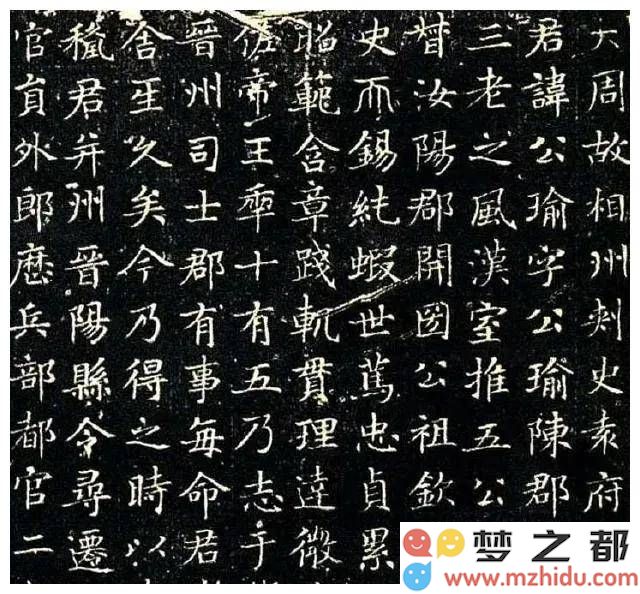 大周故相州刺史袁府
君諱公瑜字公瑜陳郡
三老之風漢室推五公
督汝陽郡開國公祖欽
史而錫純蝦世篤忠貞累
昭範含章踐軌貫理達微
佐帝王年十有五乃志于
晉州司士郡有事每命君
舍生久矣今乃得之時以
稷君并州晉陽縣令尋遷
官員外郎歷兵部都官二
梦之都
www.mzhidu.com